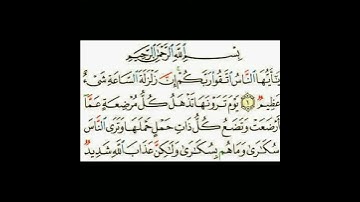 بِسْمِ اللَّهِ الرَّحْمَٰنِ الرَّحِيمِ
يَا أَيُّهَا النَّاسُ اتَّقُوا رَبَّكُمْ إِنَّ زَلْزَلَةَ السَّاعَةِ شَيْءٌ
عَظِيمٌ ١ يَوْمَ تَرَوْنَهَا تَذْهَلُ كُلُّ مُرْضِعَةٍ عَمَّا
أَرْضَعَتْ وَتَضَعُ كُلُّ ذَاتِ حَمْلٍ حَمْلَهَا وَتَرَى النَّاسَ
سُكَارَىٰ وَمَا هُم بِسُكَارَىٰ وَلَٰكِنَّ عَذَابَ اللَّهِ شَدِيدٌ